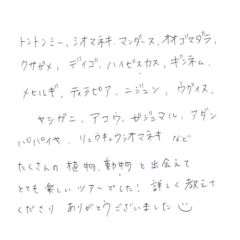 トントンミー、シオマネキ、マングース、オオゴマダラ、
クサガメ、デイゴ、ハイビスカス、ギンネム、
メヒルギ、ティラピア、ニジュン、ウグイス、
ヤシガニ、アコウ、ガジュマル、アダン
パパイヤ、リュウキュウシオマネキ など
たくさんの 植物、動物 と 出会えて
とても 楽しい ツアー でした! 詳しく 教えて
くださり ありがとうございました